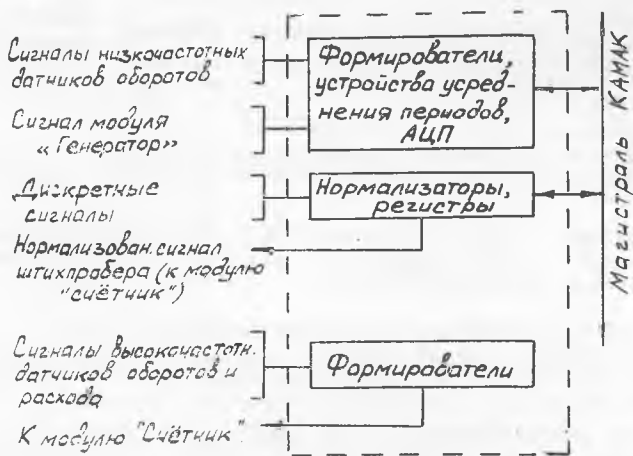 Сигналы низкочастотных
датчиков оборотов
Сигнал модуля
«Генератор»
Дискретные
сигналы
Нормализован. сигнал
штихпробера (к модулю
"счётчик")
Сигналы высокочастотн.
датчиков оборотов и
расхода
К модулю "Счётчик"
Формирователи,
устройства усред-
нения периодов,
АЦП
Нормализаторы,
регистры
Формирователи
Магистраль КАМАК